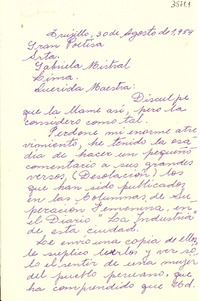 35711
Trujillo, 30 de Agosto de 1954
Gran Poetisa
Srta.
Gabriela Mistral
Lima.
Querida Maestra:
Disculpe
que la llame así, pero la
considero como tal.
Perdone mi enorme atre
vimiento, he tenido la osa
día de hacer un pequeño
comentario a sus grandes
versos, (Desolación) los
que han sido publicados
en las Columnas de Su
peración Femenina, en
el Diario "La Industria"
de esta ciudad.
Le envío una copia de ellos,
le suplico leerlos y vea so
lo el sentir de una mujer
del pueblo peruano, que
ha comprendido que Ud.